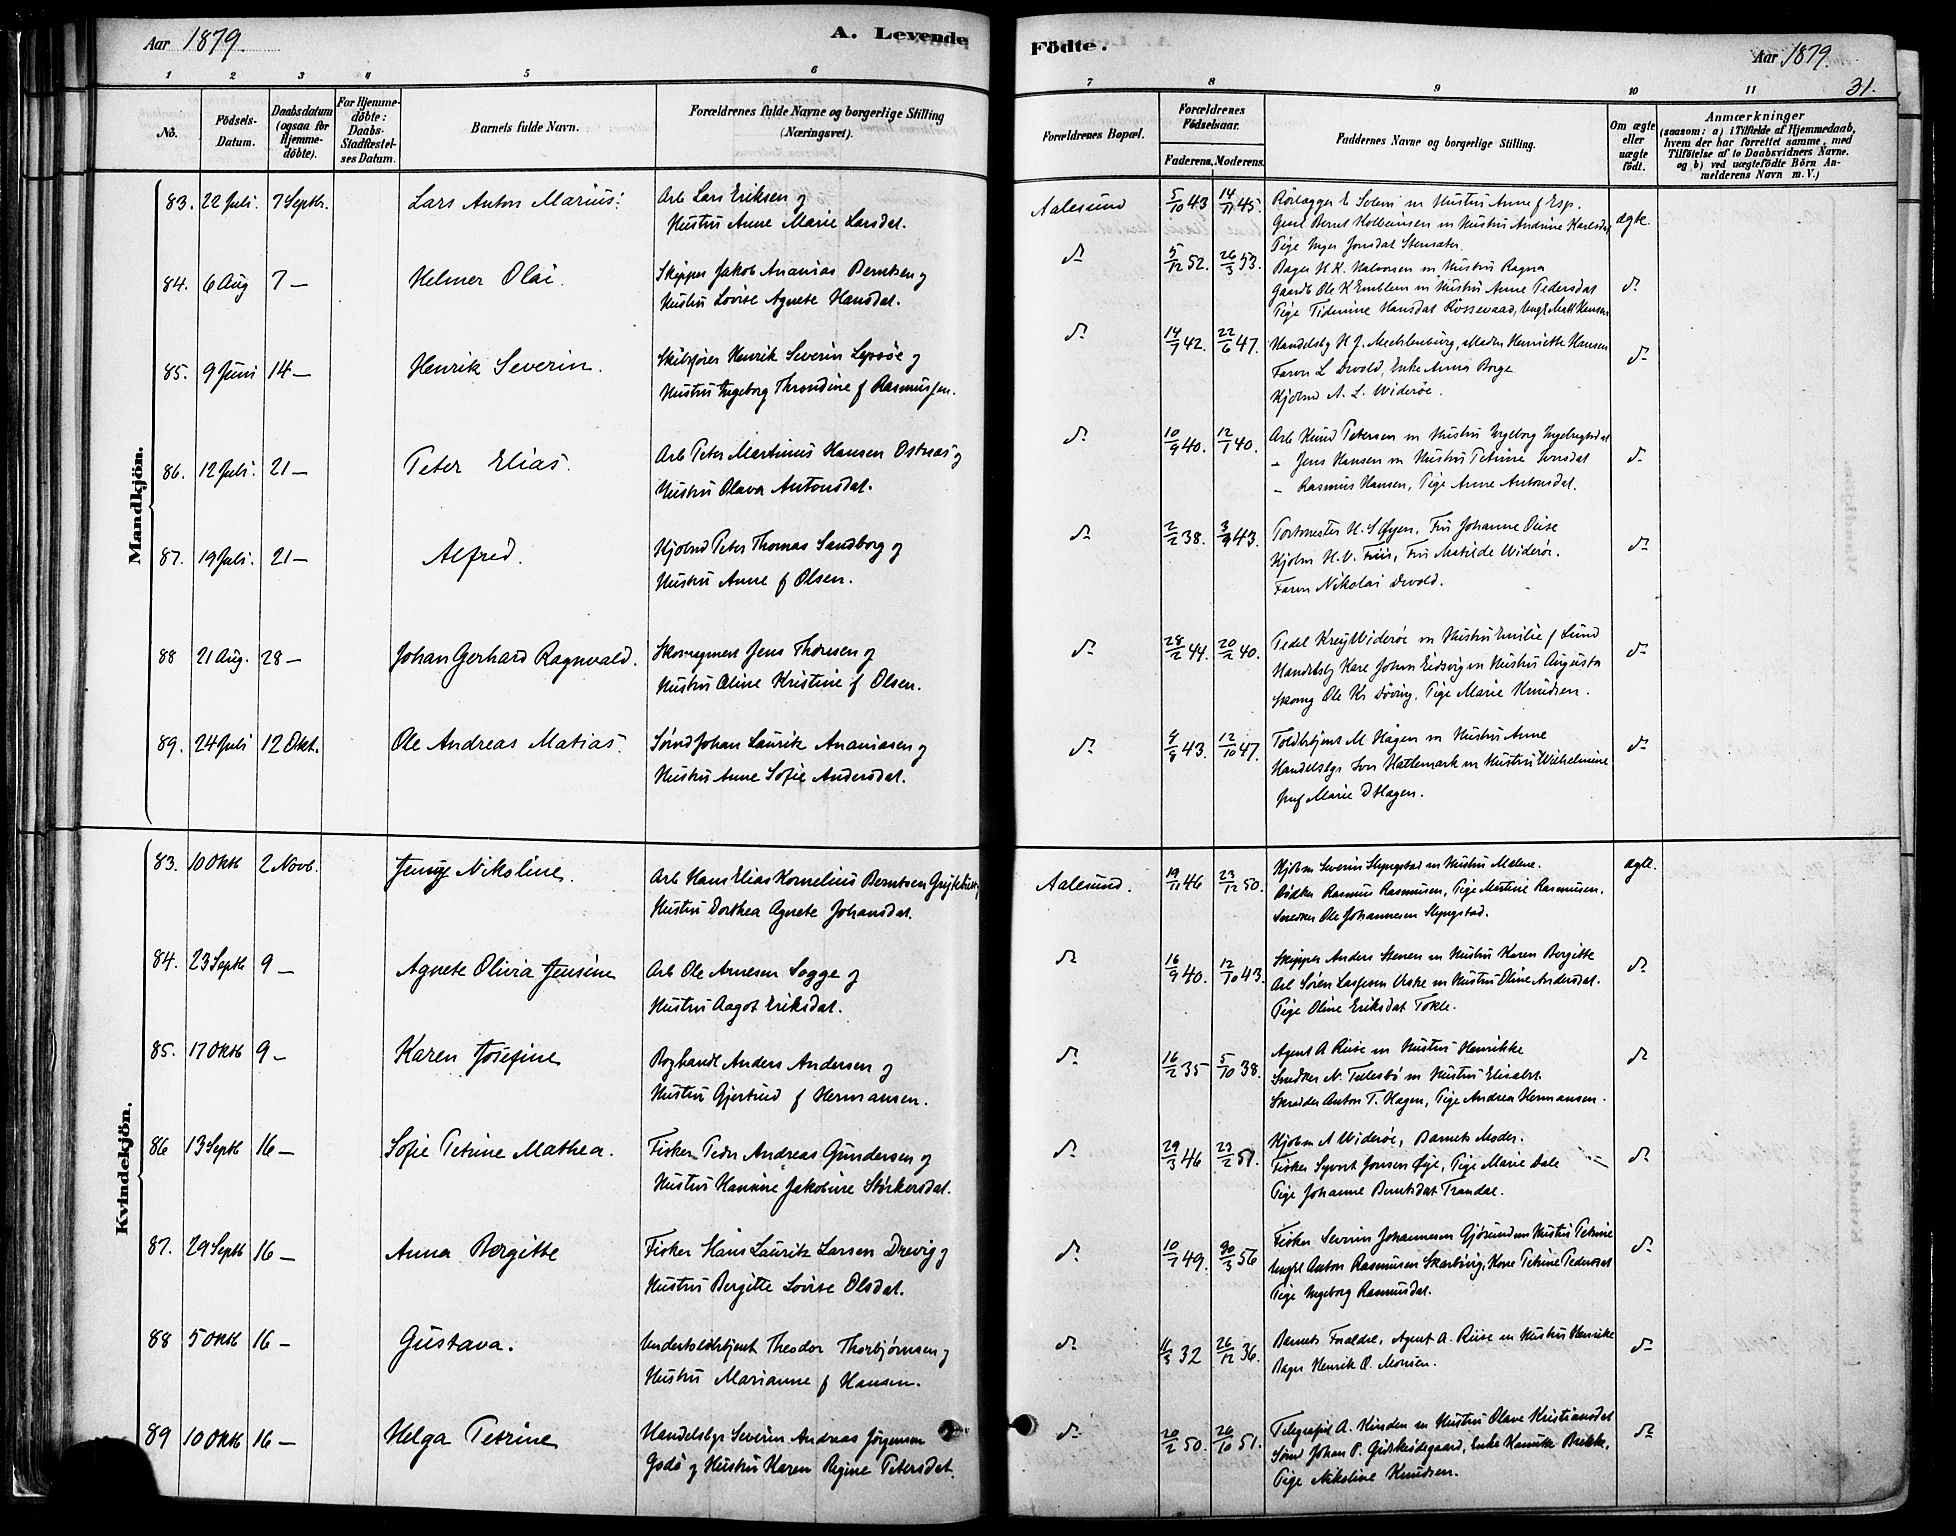 Aar 1879.
A. Levende
Fødte.
Aar 1879.
31.
1 2 3 4 5 6 7 8 9 10 11
No.
Födsels-Datum.
Daabsdatum (ogsaa for Hjemme-döbte).
For Hjemme-döbte: Daabs-Stadfæstel-ses Datum.
Barnets fulde Navn.
Forældrenes fulde Navne og borgerlige Stilling (Næringsvei).
Forældrenes Bopæl.
Forældrenes Födselsaar.
Faderens. Moderens.
Faddernes Navne og borgerlige Stilling.
Om ægte eller uægte födt.
Anmærkninger
(saasom: a) i Tilfælde af Hjemmedaab, hvem der har forrettet samme, med Tilföielse af to Daabsvidners Navne. og b) ved uægtefödte Börn An-melderens Navn m. V.)
Mandkjön.
83. 22 Juli. 7 Septb. Lars Anton Marius. Arb Lars Eriksen og
Hustru Anne Marie Larsdat.
Aalesund 5/10 43 14/11 45. E Solem m Hustru Anne f Esp.
m Hustru Andrine
Pige Inger Jonsdat
ægte.
84. 6 Aug 7 — Helmer Olai. Skipper Jakob Ananias Berntsen og
Hustru Lovise Agnete Hansdat.
do 5/12 52. 26/3 53. Bager H. K. Halvorsen m Hustru Ragna
Gaardb Ole K Emblem m Hustru Anne Pedersdat
Pige Hansdat
do
85. 9 Juni 14 — Henrik Severin. Skibsfører Henrik Severin Lyssøe og
Hustru Ingeborg Throndine f Rasmussen.
do 14/7 42. 22/6 47. Handelsbg H J. Mechlenburg, Henriette Hansen
Farver L Devold, Enke Anna Borge
Kjøbmd A. L. Widerøe.
do
86. 12 Juli. 21 — Peter Elias. Arb Peter Martinus Hansen Ostnes og
Hustru Olava Antonsdat.
do 10/9 40. 12/1 40. Arb Knud Petersen m Hustru Ingeborg Ingebrigtsdat
" Jens Hansen m Hustru Petrine
" Rasmus Hansen, Pige Anne Antonsdat.
do
87. 19 Juli. 21 — Alfred. Kjøbmd Peter Thomas Sandborg og
Hustru Anne f Olsen.
do 2/2 38. 3/9 43. H. S Øyen, Fru Johanne
Kjøbm H. V. Friis, Fru Matilde Widerøe.
Farver Nikolai Devold.
do
88 21 Aug. 28 — Johan Gerhard Ragnvald. Skomagerm Jens Thoresen og
Hustru Oline Kristine f Olsen.
do 28/2 44. 20/2 40. Widerøe m Hustru Emilie f Lund
Handelsbg Karl Johan Eidsvig m Hustru Augusta
Skomg Ole Kr Døving, Pige Marie Knudsen.
do
89. 24 Juli 12 Okt. Ole Andreas Matias. Sømd Johan Laurik Ananiasen og
Hustru Anne Sofie Andersdat.
do 43. 12/10 47. Toldbetjent M Hagen m Hustru Anne
Handelsbgr Iver Hattemark m Hustru Wilhelmine
Marie D Hagen.
do
Kvindekjön.
83. 10 Oktb 2 Novb. Jenny Nikoline. Arb Hans Elias Kornelius Berntsen
Hustru Dorthea Agnete Johansdat.
Aalesund. 19/11 46 23/12 50. Kjøbm Severin Slyngstad m Hustru Malene.
Bødker Rasmus Rasmussen, Pige Martine Rasmussen.
Snedker Ole Johannesen Slyngstad.
ægte.
84. 23 Septb 9 — Agnete Olivia Jensine Arb Ole Arnesen Sogge og
Hustru Aagot Eriksdat.
do 16/9 40. 12/10 43. Skipper Anders Stenen m Hustru Karen Bergitte
Arb Søren Larsen Urke m Hustru Oline Andersdat.
Pige Oline Eriksdat Tokle.
do
85. 17 Oktb 9 — Karen Josefine Boghandl Anders Andersen og
Hustru Gjertrud f Hermansen.
do 16/2 35 5/10 38. Agent A Riise m Hustru Henrikke
Snedker N. m Hustru Elisabet.
Skrædder Anton T. Hagen, Pige Andrea Hermansen.
do
86 13 Septb 16 — Sofie Petrine Mathea. Fisker Peder Andreas Gundersen og
Hustru Hansine Jakobine Størkersdat.
do 29/3 46 23/2 51. Kjøbm A Widerøe, Barnets Moder.
Fisker Syvert Jonsen Øye, Pige Marie Dale
Pige Johanne Berntsdat Trandal.
do
87. 29 Septb 16 — Anna Bergitte Fisker Hans Lauritz Larsen Drevig og
Hustru Bergitte Lovise Olsdat.
do 10/1 49. 30/3 56 Fisker Severin Johannesen Gjøsund m Hustru Petrine
Ungkl Anton Rasmusen Skarbøvig, Kone Petrine Pedersdat
Pige Ingeborg Rasmusdat.
do
88 5 Oktb 16 — Gustava. Undertoldbetjent Theodor Thorbjørnsen og
Hustru Marianne f Hansen.
do 11/3 32 26/12 36. Barnets Forældre, Agent A. Riise m Hustru Henrikke
Bager Henrik O. Monsen.
do
89 10 Oktb 16 — Helga Petrine Handelsbgr Severin Andreas Jørgensen
Godø og Hustru Karen Regine Petersdat.
do 20/2 50. 26/10 51. Telegrafist A. Hinden m Hustru Olave Kristiansdat
Sømd Johan P. Giskeødegaard, Enke
Pige Nikoline Knudsen.
do